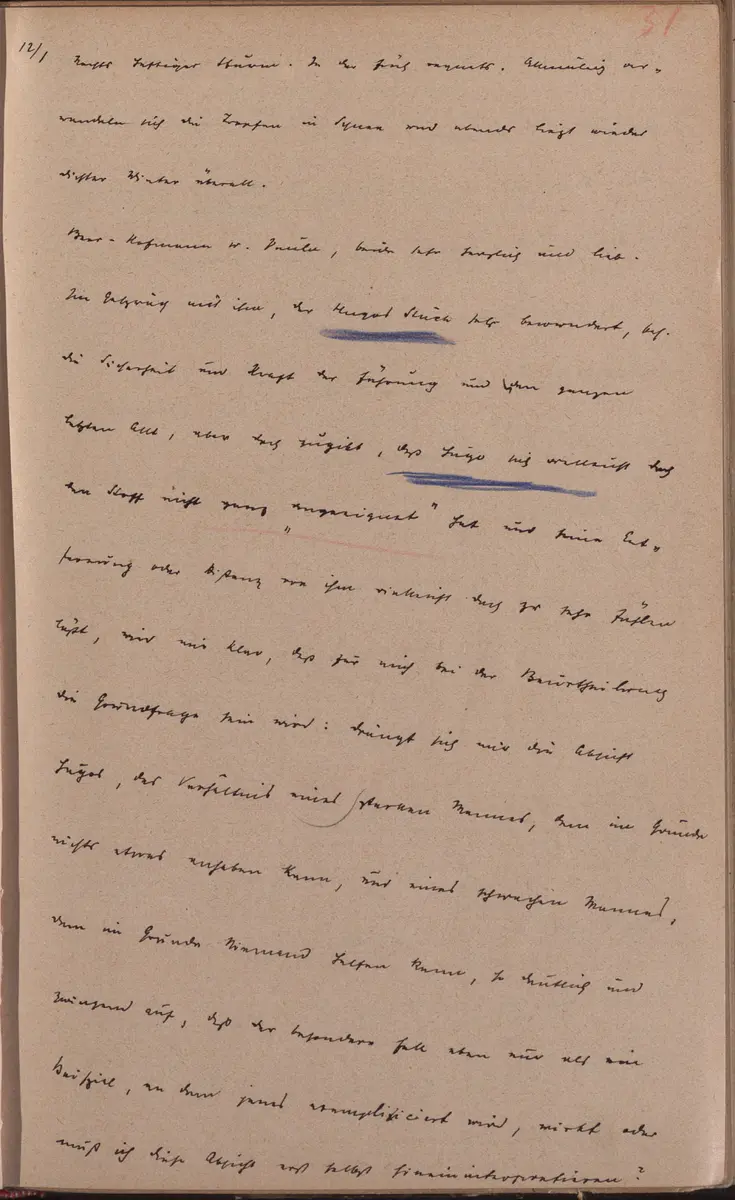 31
12/1 Nachts heftiger Sturm. In der Früh regnets. Allmälig ver-
wandeln sich die Tropfen in Schnee und abends liegt wieder
dichter Winter überall.
Beer-Hofmann u. Paula, beide sehr herzlich und lieb.
Im Gespräch mit ihm, der Hugos Stück sehr bewundert, bes.
die Sicherheit und Kraft der Führung und den ganzen
letzten Akt, aber doch zugibt, daß Hugo sich vielleicht doch
den Stoff nicht ganz „angeeignet“ hat und seine Ent-
fernung oder Distanz von ihm vielleicht doch zu sehr fühlen
läßt, wird mir klar, daß für mich bei der Beurtheilung
die Grundfrage sein wird: drängt sich mir die Absicht
Hugos, das Verhältnis eines starken Mannes, dem im Grunde
nichts etwas anhaben kann, und eines schwachen Mannes,
dem im Grunde Niemand helfen kann, so deutlich und
zwingend auf, daß der besondere Fall eben nur als ein
Beispiel, an dem jenes exemplificiert wird, wirkt oder
muß ich diese Absicht erst selbst hineininterpretieren?